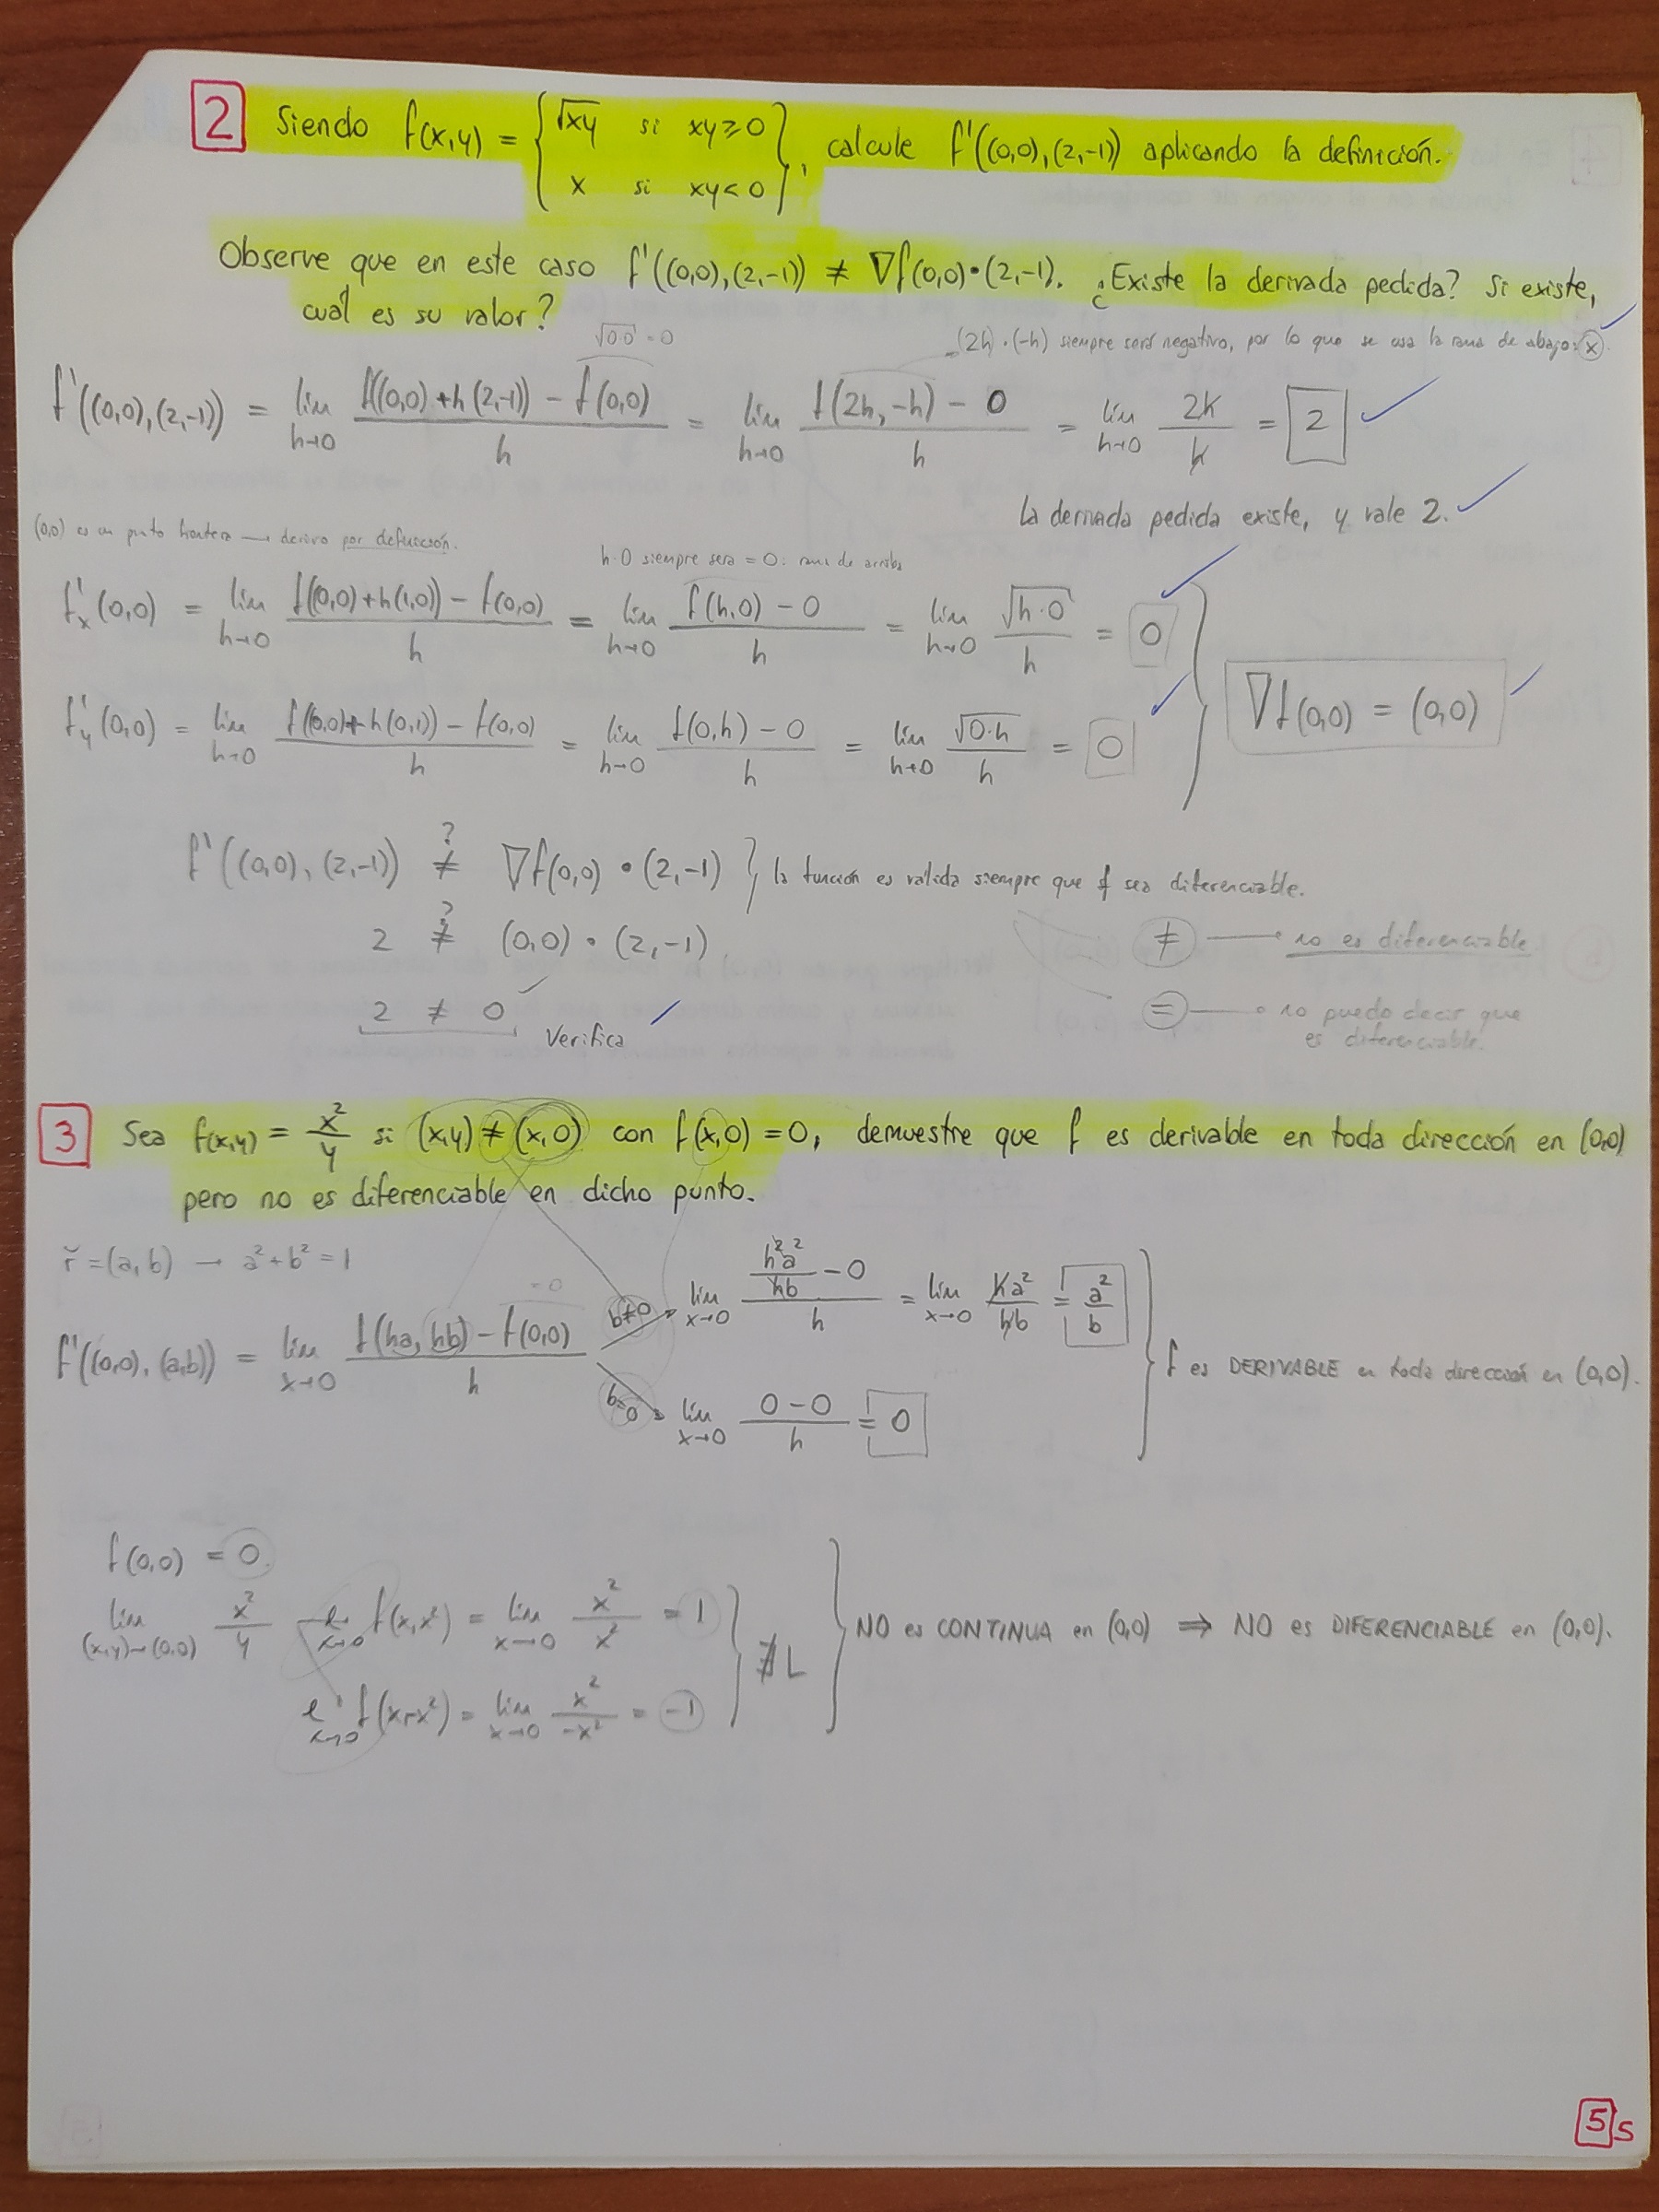 2 Siendo f(x,y) = { √xy si xy ≥ 0
x si xy < 0 }, calcule f'((0,0),(2,-1)) aplicando la definición.
Observe que en este caso f'((0,0),(2,-1)) ≠ ∇f(0,0)•(2,-1). ¿Existe la derivada pedida? Si existe,
cuál es su valor?
√0·0 = 0
(2h)·(-h) siempre será negativo, por lo que se usa la rama de abajo: x.
f'((0,0),(2,-1)) = lím h→0 f((0,0)+h(2,-1)) - f(0,0) / h = lím h→0 f(2h,-h) - 0 / h = lím h→0 2h / h = 2
La derivada pedida existe, y vale 2.
(0,0) es un punto frontera → derivo por definición.
h·0 siempre será = 0: rama de arriba
f'x(0,0) = lím h→0 f((0,0)+h(1,0)) - f(0,0) / h = lím h→0 f(h,0) - 0 / h = lím h→0 √h·0 / h = 0
f'y(0,0) = lím h→0 f((0,0)+h(0,1)) - f(0,0) / h = lím h→0 f(0,h) - 0 / h = lím h→0 √0·h / h = 0
} ∇f(0,0) = (0,0)
f'((0,0),(2,-1)) ≠? ∇f(0,0) • (2,-1) } la función es valida siempre que f sea diferenciable.
2 ≠? (0,0) • (2,-1)
≠ → no es diferenciable
2 ≠ 0 Verifica
= → no puedo decir que
es diferenciable.
3 Sea f(x,y) = x²/y si (x,y) ≠ (x,0) con f(x,0) = 0, demuestre que f es derivable en toda dirección en (0,0)
pero no es diferenciable en dicho punto.
ř = (a,b) → a² + b² = 1
= 0
f'((0,0),(a,b)) = lím x→0 f(ha,hb) - f(0,0) / h
b≠0 → lím x→0 h²a²/hb - 0 / h = lím x→0 ha²/hb = a²/b
b=0 → lím x→0 0-0 / h = 0
} f es DERIVABLE en toda dirección en (0,0).
f(0,0) = 0.
lím (x,y)→(0,0) x²/y
l x→0 f(x,x²) = lím x→0 x²/x² = 1
l x→0 f(x,-x²) = lím x→0 x²/-x² = -1
} ∄ L } NO es CONTINUA en (0,0) ⇒ NO es DIFERENCIABLE en (0,0).
5 s